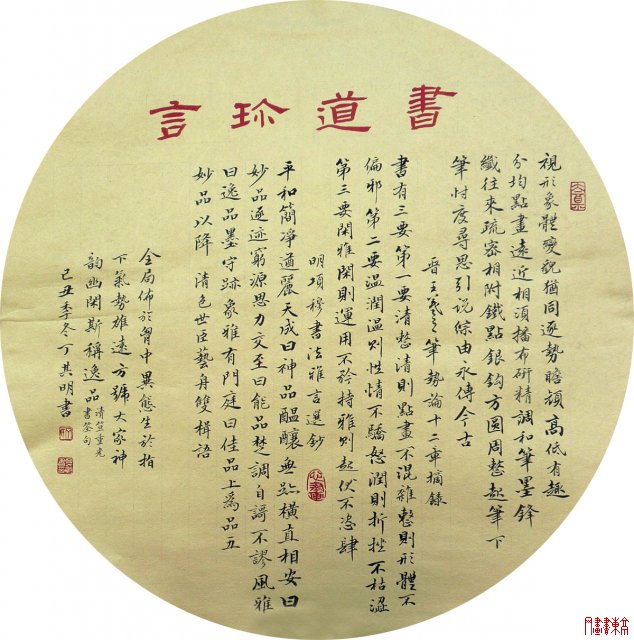 書道珍言
視形象體變貌猶同逐勢瞻頏高低有趣
分均點畫遠近相須播布研精調和筆墨鋒
纖往來疏密相附鐵點銀鈎方圓周整起筆下
筆忖度尋思引説縱由永傳今古
晋王羲之筆勢論十二章摘錄
書有三要第一要清整清則點畫不混雜整則形體不
偏邪第二要温潤温則性情不驕怒潤則折挫不枯澀
第三要閑雅閑則運用不矜持雅則起伏不恣肆
明項穆書法雅言選鈔
平和簡凈遒麗天成曰神品醞釀無迹橫直相安曰
妙品逐迹窮源思力交至曰能品楚調自謌不謬風雅
曰逸品墨守跡象雅有門庭曰佳品上爲品五
妙品以降清包世臣藝舟雙楫語
全局佈於胷中異態生於指
下氣勢雄遠方號大家神
韵幽閑斯稱逸品
清笪重光
書筏句
己丑季冬丁其明書